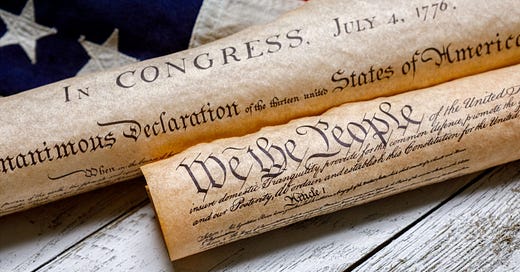 In CONGRESS, July 4, 1776.
nanimous Declaration of the thirteen united States of America
When in the
We the People of the United
insure domestic Tranquility, provide for the common defence, promote the
and our Posterity, do ordain and establish this Constitution for the United
Article I